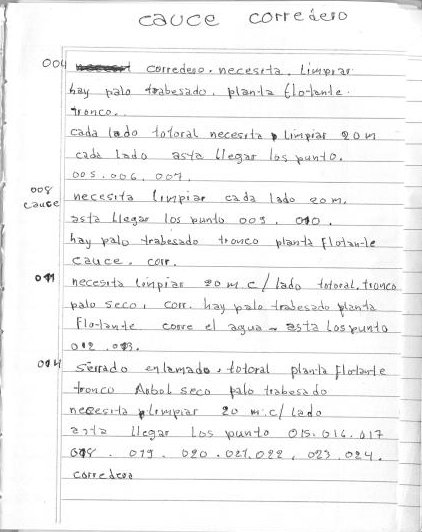 cauce corredero
004 corredero. necesita. Limpiar
hay palo trabesado. planta flotante.
tronco.
cada lado totoral necesita Limpiar 20 m
cada lado asta llegar los punto.
005. 006. 007.
008 necesita limpiar cada lado 20 m.
cauce asta llegar los punto 009. 010.
hay palo trabesado tronco planta flotante
cauce. corr.
011 necesita limpiar 20 m c/ lado totoral. tronco
palo seco. corr. hay palo trabesado planta
flotante corre el agua asta los punto
012. 013.
014 serrado enlamado. totoral planta flotante
tronco Arbol seco palo trabesado
necesita limpiar 20 m c/ lado
asta llegar Los punto 015. 016. 017
018. 019. 020. 021. 022, 023. 024.
corredera